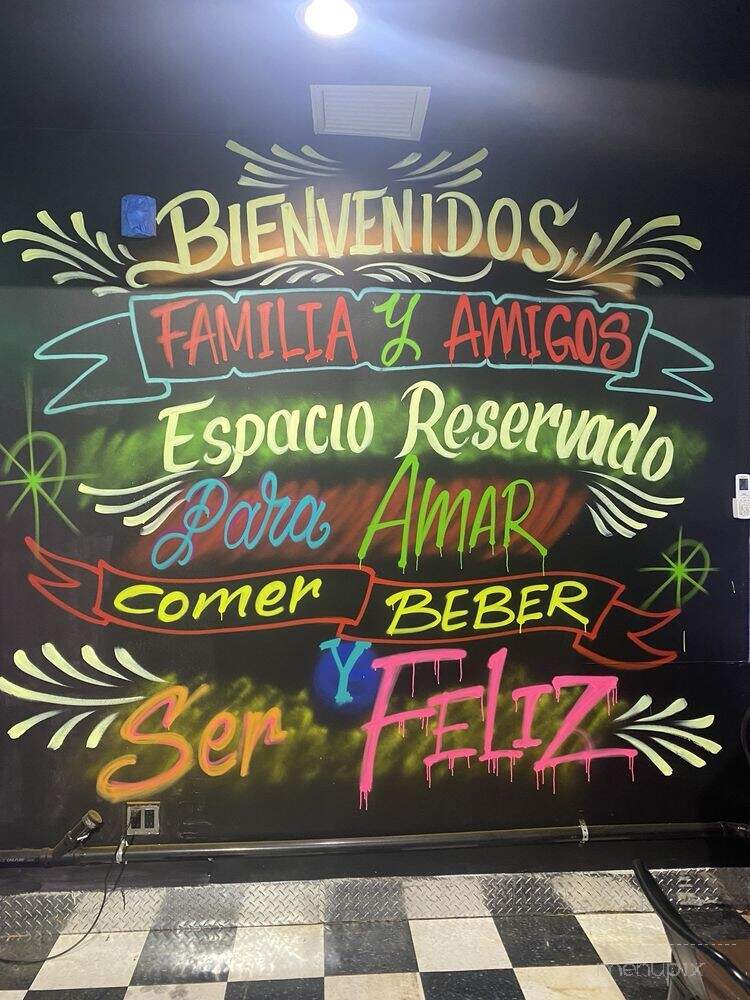 BIENVENIDOS
FAMILIA Y AMIGOS
Espacio Reservado
Para AMAR
comer BEBER
Y
Ser FELIZ
menupix